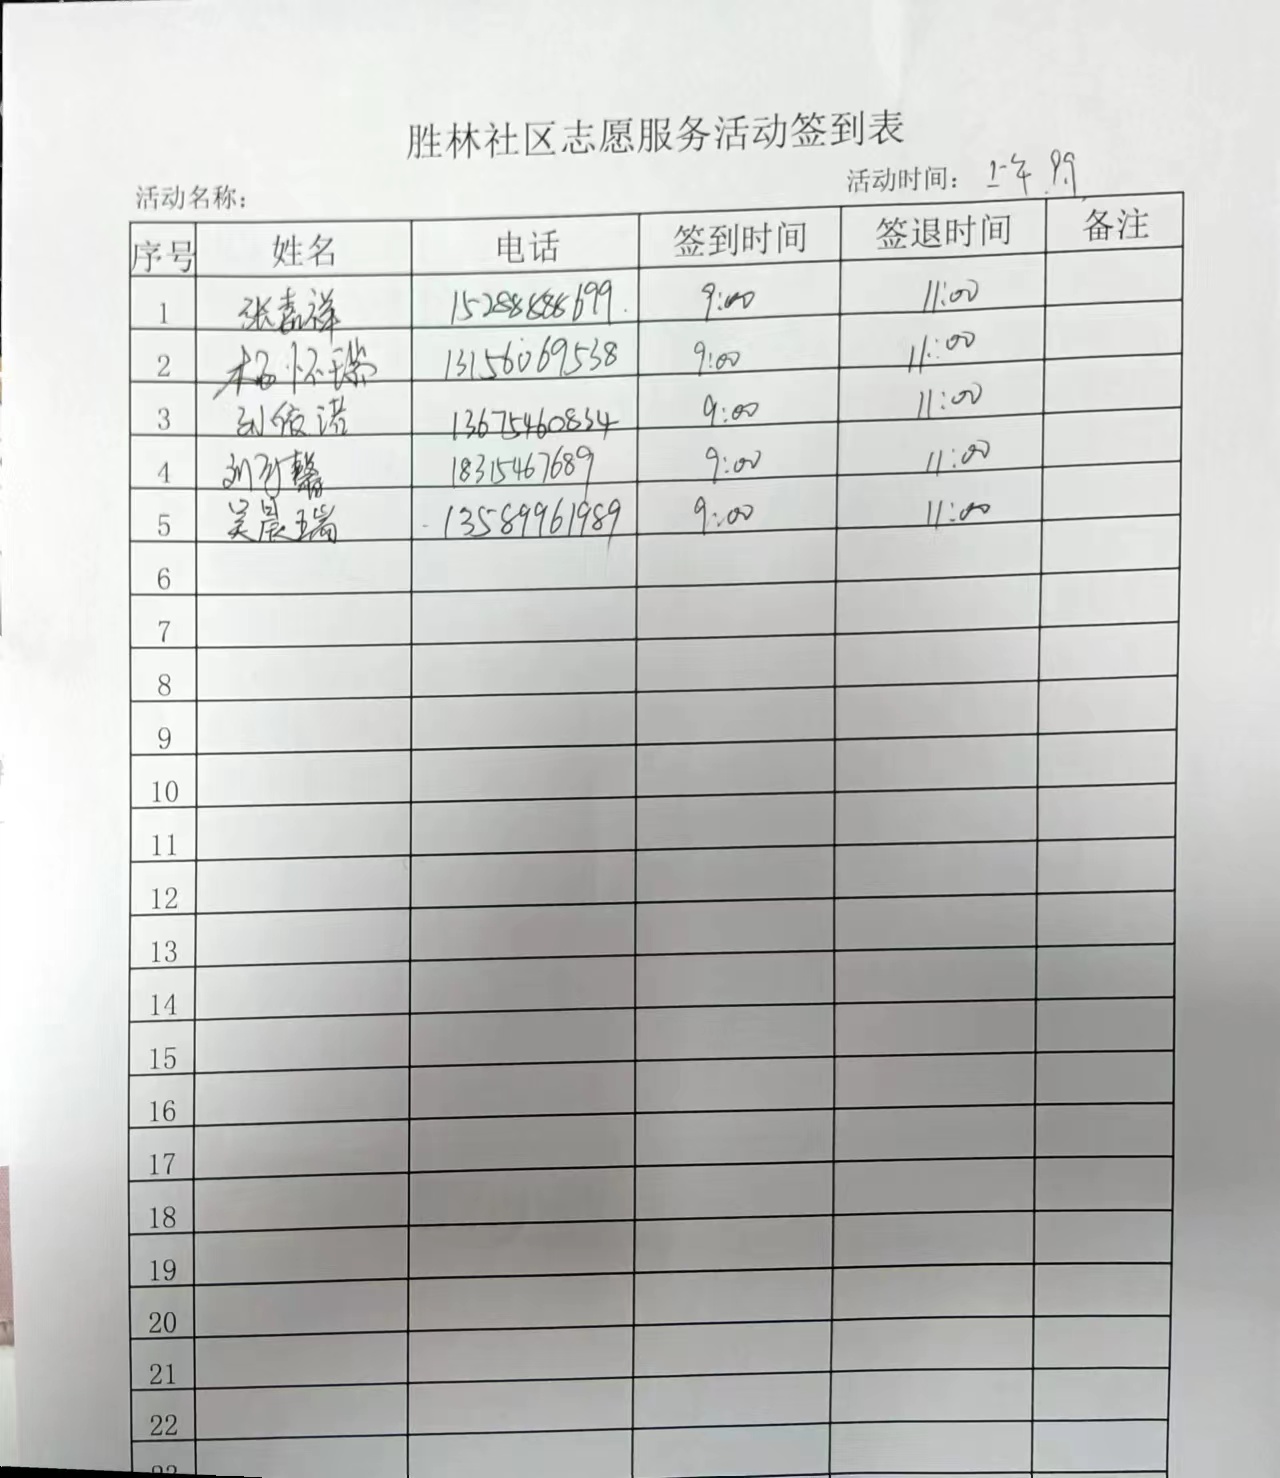 胜林社区志愿服务活动签到表
活动名称： 活动时间：上午
序号 姓名 电话 签到时间 签退时间 备注
1 张嘉祥 15288888699 9:00 11:00
2 杨怀瑞 13156069538 9:00 11:00
3 刘依诺 13675460834 9:00 11:00
4 刘可馨 18315467689 9:00 11:00
5 吴晨瑞 13589961989 9:00 11:00
6
7
8
9
10
11
12
13
14
15
16
17
18
19
20
21
22